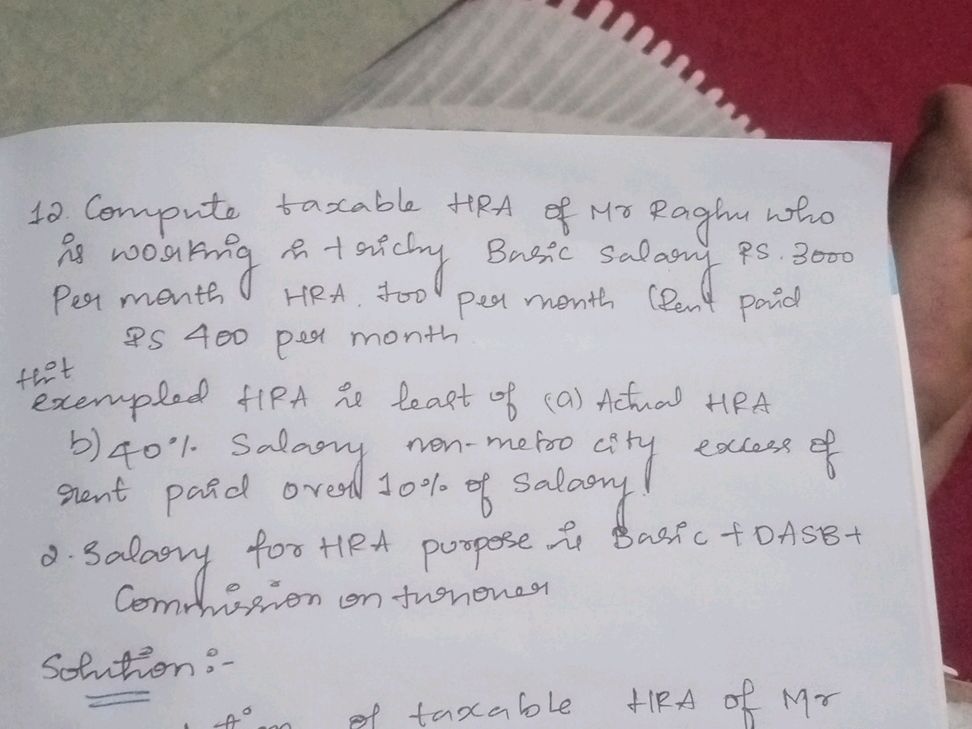 12. Compute taxable HRA of Mr Raghu who
is working in trichy Basic salary RS. 3000
Per month HRA. 700 per month (Rent paid
RS 400 per month
Hint
exempled HRA is least of (a) Actual HRA
b) 40% Salary non-metro city excess of
rent paid over 10% of salary.
2. Salary for HRA purpose is Basic + DASB +
Commission on turnover
Solution :-
of taxable HRA of Mr